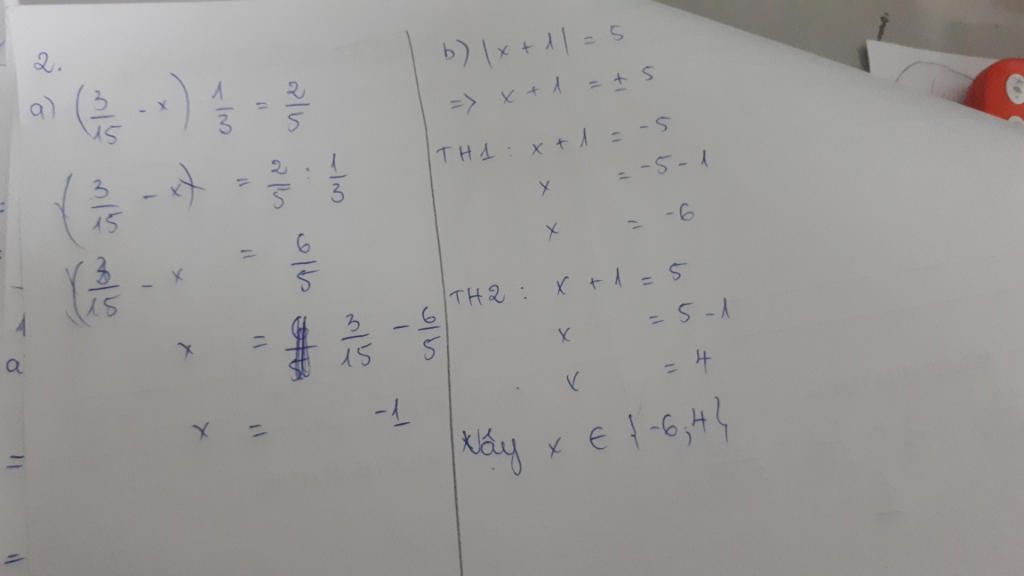 2.
a) (3/15 - x) 1/3 = 2/5
(3/15 - x) = 2/5 : 1/3
(3/15 - x = 6/5
x = 3/15 - 6/5
x = -1
b) |x + 1| = 5
=> x + 1 = ± 5
TH1 : x + 1 = -5
x = -5 - 1
x = -6
TH2 : x + 1 = 5
x = 5 - 1
x = 4
Vậy x ∈ {-6;4}
1
a
=
=